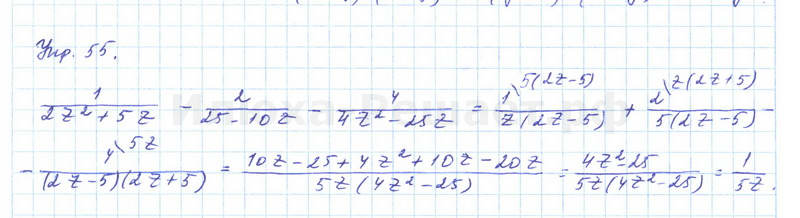 Упр. 55.
1/(2z²+5z) - 2/(25-10z) - 4/(4z²-25z) = 1\5(2z-5)/(z(2z-5)) + 2\z(2z+5)/(5(2z-5)) -
- 4\5z/((2z-5)(2z+5)) = (10z-25+4z²+10z-20z)/(5z(4z²-25)) = (4z²-25)/(5z(4z²-25)) = 1/(5z).